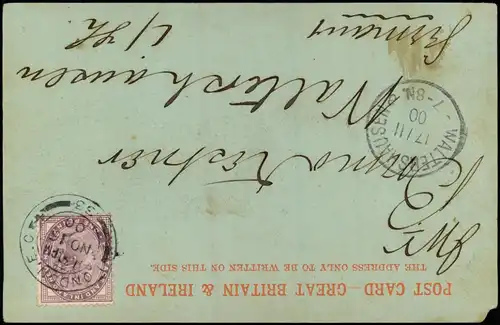 POST CARD — GREAT BRITAIN & IRELAND
THE ADDRESS ONLY TO BE WRITTEN ON THIS SIDE.
Kestner
Waltershausen
i/Th
Germany
WALTERSHAUSEN
17/11
00
7-8N.
LONDON
NO
00